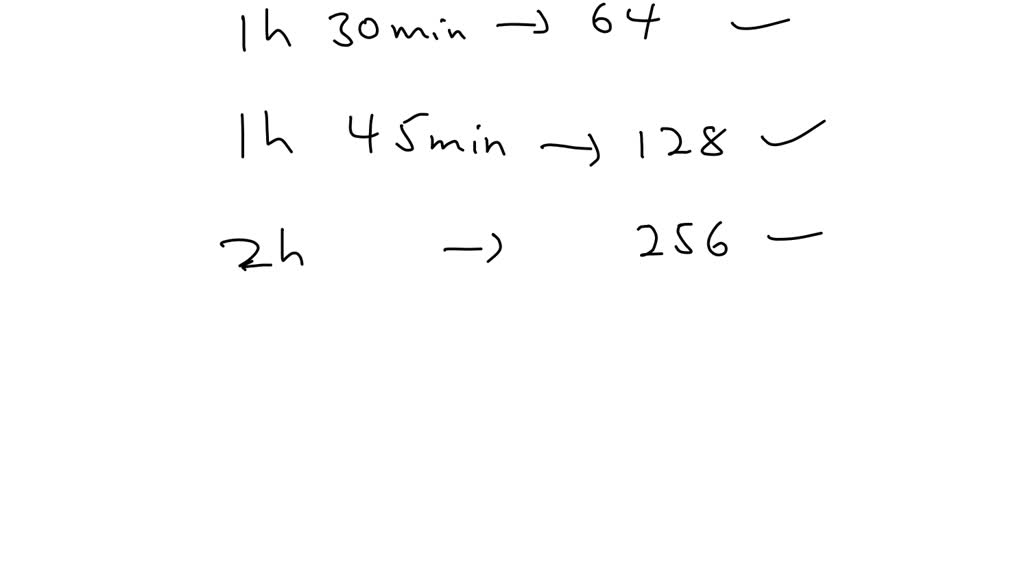 1h 30min → 64
1h 45min → 128
2h → 256